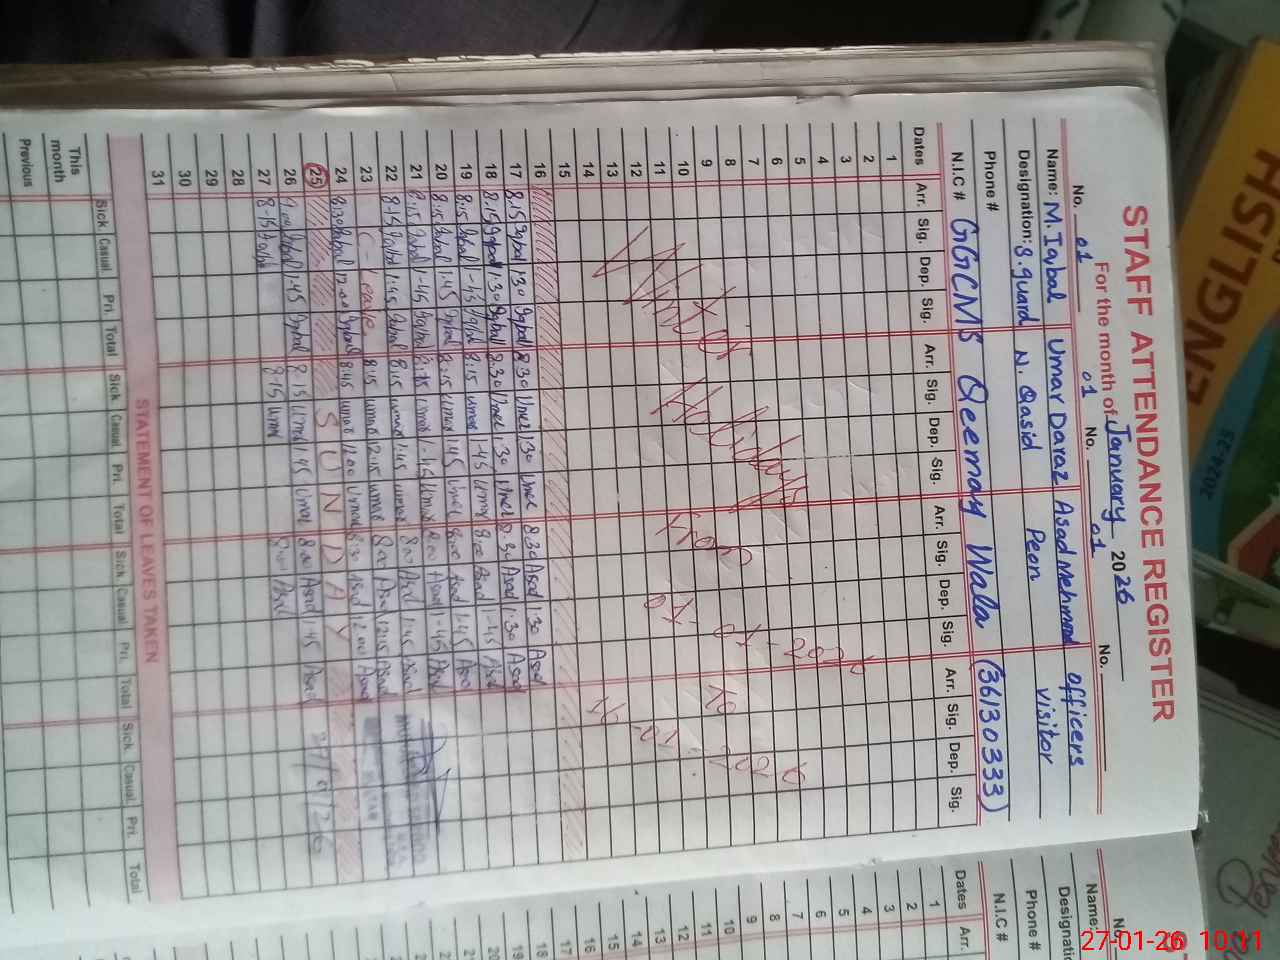 STAFF ATTENDANCE REGISTER
For the month of January 2026
No. 01 No. 01 No. 01 No.
Name: M. Iqbal Umar Daraz Asad Mehmood officers
Designation: S. guard N. Qasid Peon visitor
Phone #
N.I.C # GGCMS Qeemay Wala (36130333)
Dates Arr. Sig. Dep. Sig. Arr. Sig. Dep. Sig. Arr. Sig. Dep. Sig. Arr. Sig. Dep. Sig.
1
2
3
4
5
6
7
8
9
10
11
12
13
14
15
Winter Hollidays From 01-01-2026
to 16-01-2026
16
17 8.15 Iqbal 1:30 Iqbal 8:30 Umer 1:30 Umer 8:30 Asad 1:30 Asad
18 8:15 Iqbal 1:30 Iqbal 8:30 Umer 1:30 Umer 8:30 Asad 1:30 Asad
19 8:15 Iqbal 1-45 Iqbal 8:15 Umar 1-45 Umar 8:00 Asad 1-45 Asad
20 8:15 Iqbal 1:45 Iqbal 8:15 Umar 1:45 Umer 8:00 Asad 1:45 Asad
21 8:15 Iqbal 1-45 Iqbal 8:15 Umar 1-45 Umar 8:00 Asad 1-45 Asad
22 8-15 Iqbal 1:45 Iqbal 8:15 Umar 1:45 Umar 8:00 Asad 1:45 Asad
23 C - Leave 8:15 Umar 12:15 Umar 8:00 Asad 12:15 Asad
24 8:30 Iqbal 12:00 Iqbal 8:45 Umar 12:00 Umar 8:30 Asad 12:00 Asad
25 S U N D A Y
26 Iqbal 1:45 Iqbal 8:15 Umar 1:45 Umar 8:00 Asad 1:45 Asad
27 8-15 Iqbal 8-15 Umar 8:00 Asad
27/01/26
28
29
30
31
STATEMENT OF LEAVES TAKEN
Sick Casual Pri. Total Sick Casual Pri. Total Sick Casual Pri. Total Sick Casual Pri. Total
This month
Previous
ENGLISH
2024-25
No.
Name:
Designati
Phone #
N.I.C #
Dates Arr.
1
2
3
4
5
6
7
8
9
10
11
12
13
14
16
17
18
19
20
27-01-26 10:11